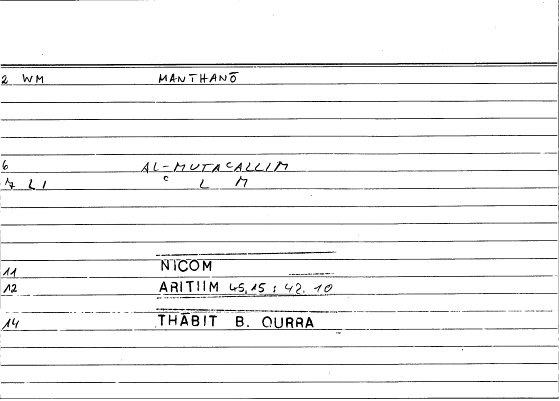 2 WM MANTHANŌ
6 AL-MUTAᶜALLIM
7 LI ᶜ L M
11 NICOM
12 ARITIIM 45,15 : 42.10
14 THĀBIT B. QURRA